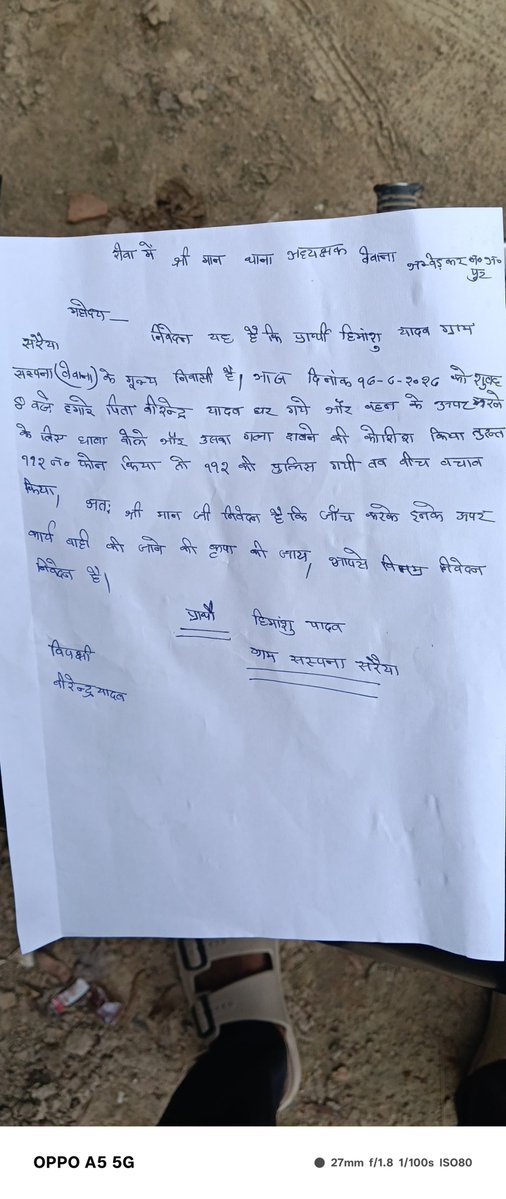 सेवा में श्री मान थाना अध्यक्षक जैवाना अम्बेडकर न०
पुर
महोदय—
निवेदन यह है कि प्रार्थी हिमांशु यादव ग्राम
सरैया
सस्पना (जेवाना) के मूल्य निवासी है। आज दिनांक को शुबह
8 बजे हमारे पिता वीरेन्द्र यादव घर गये और बहन के उपर मारने
के लिए धावा बोले और उसका गला दावने की कोशिश किया तुरन्त
११२ न० फोन किया तो ११२ की पुलिस गयी तव बीच बचाव
किया,
अत: श्री मान जी निवेदन है कि जाँच करके इनके उपर
कार्य वाही की जाने की कृपा की जाय, आपसे विनम्र निवेदन
निवेदन है।
प्रार्थी हिमांशु यादव
ग्राम सस्पना सरैया
विपक्षी
वीरेन्द्र यादव
OPPO A5 5G
27mm f/1.8 1/100s ISO80